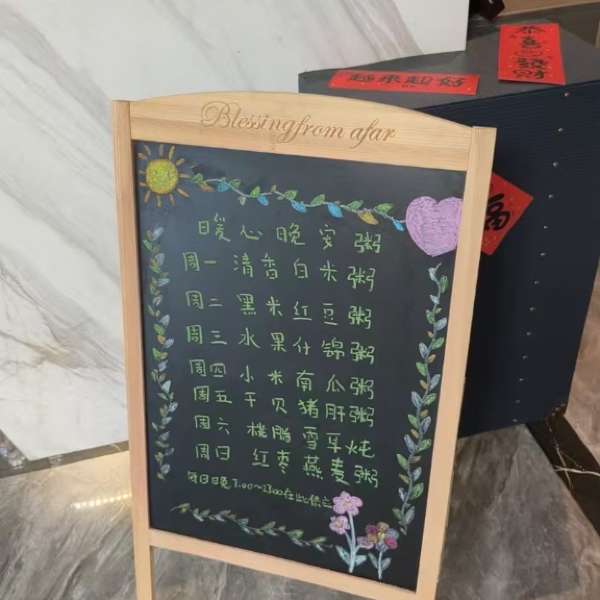 恭喜發财
越来越好
Blessing from afar
福
暖心晚安粥
周一 清香白米粥
周二 黑米红豆粥
周三 水果什锦粥
周四 小米南瓜粥
周五 干贝猪肝粥
周六 桃脂雪耳炖
周日 红枣燕麦粥
每日晚 :00~23:00在此供